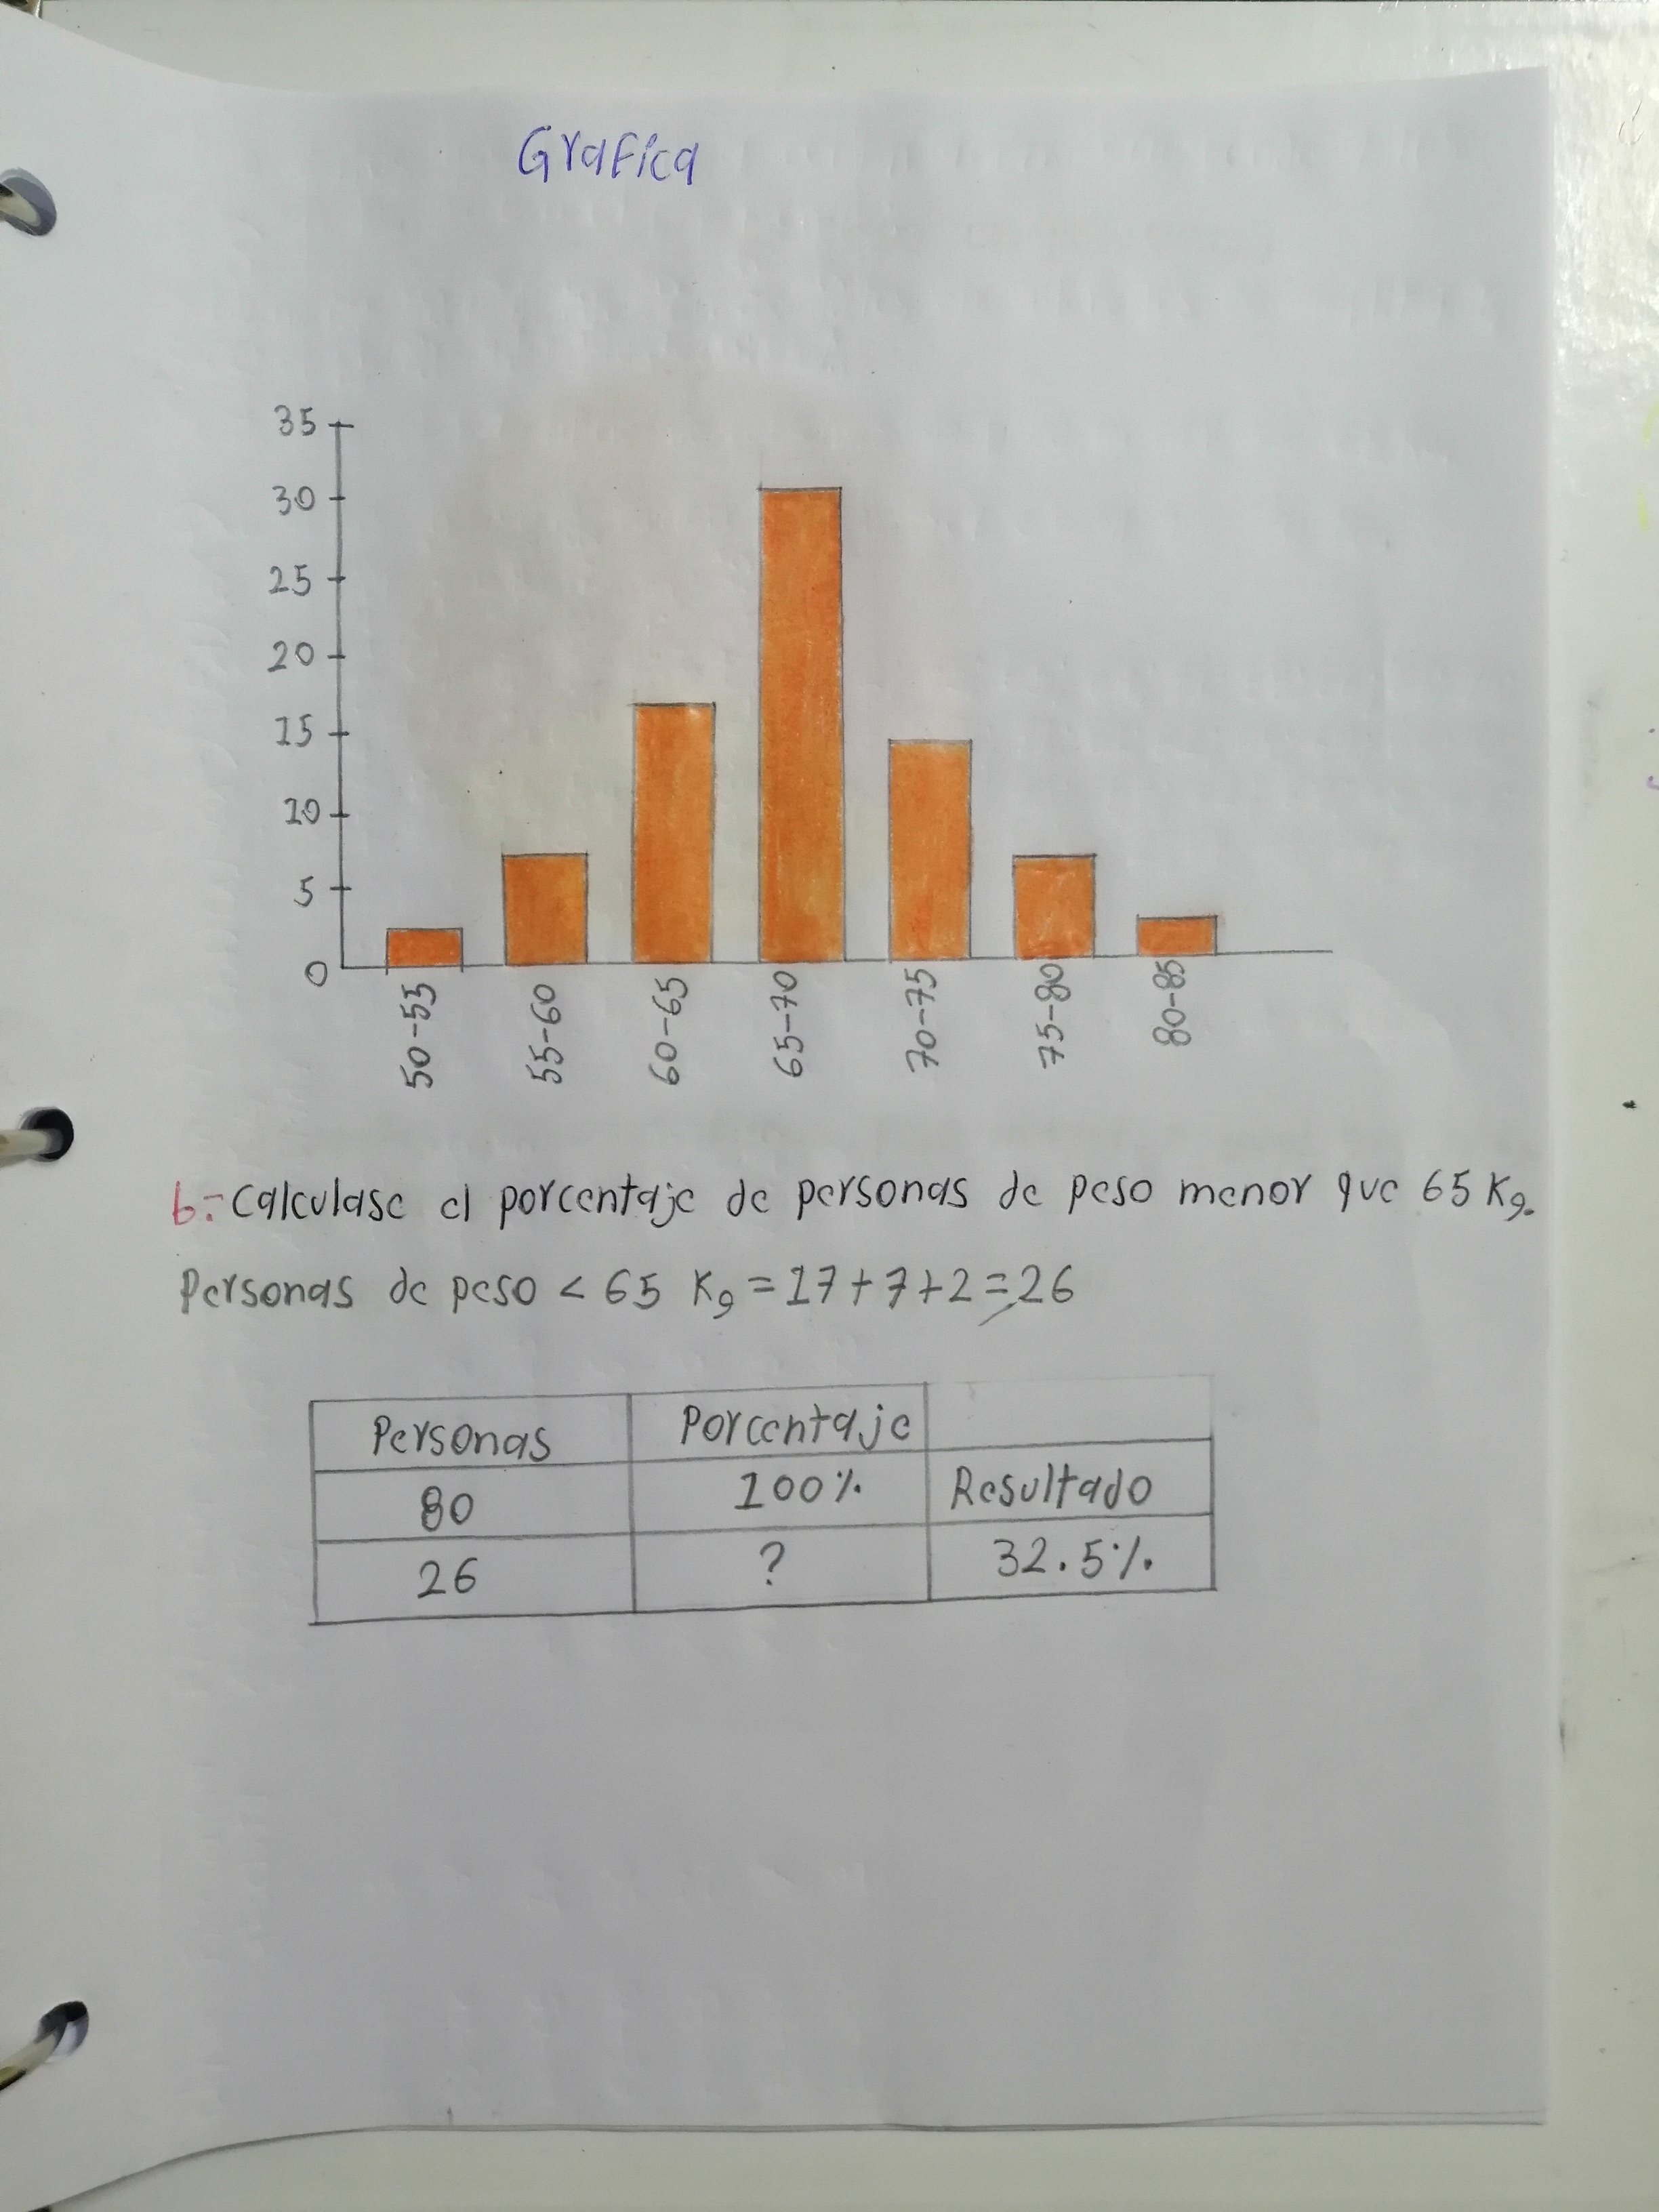 Grafica
35
30
25
20
15
10
5
0
50-55
55-60
60-65
65-70
70-75
75-80
80-85
b.- Calculase el porcentaje de personas de peso menor que 65 Kg.
Personas de peso < 65 Kg = 17+7+2=26
Personas Porcentaje
80 100% Resultado
26 ? 32.5%